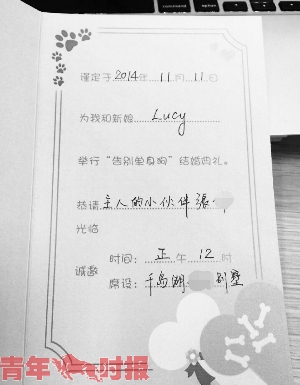 谨定于2014年11月11日
为我和新娘Lucy
举行“告别单身狗”结婚典礼。
恭请主人的小伙伴張
光临
诚邀
时间:正午12时
席设:千岛湖 别墅
青年时报